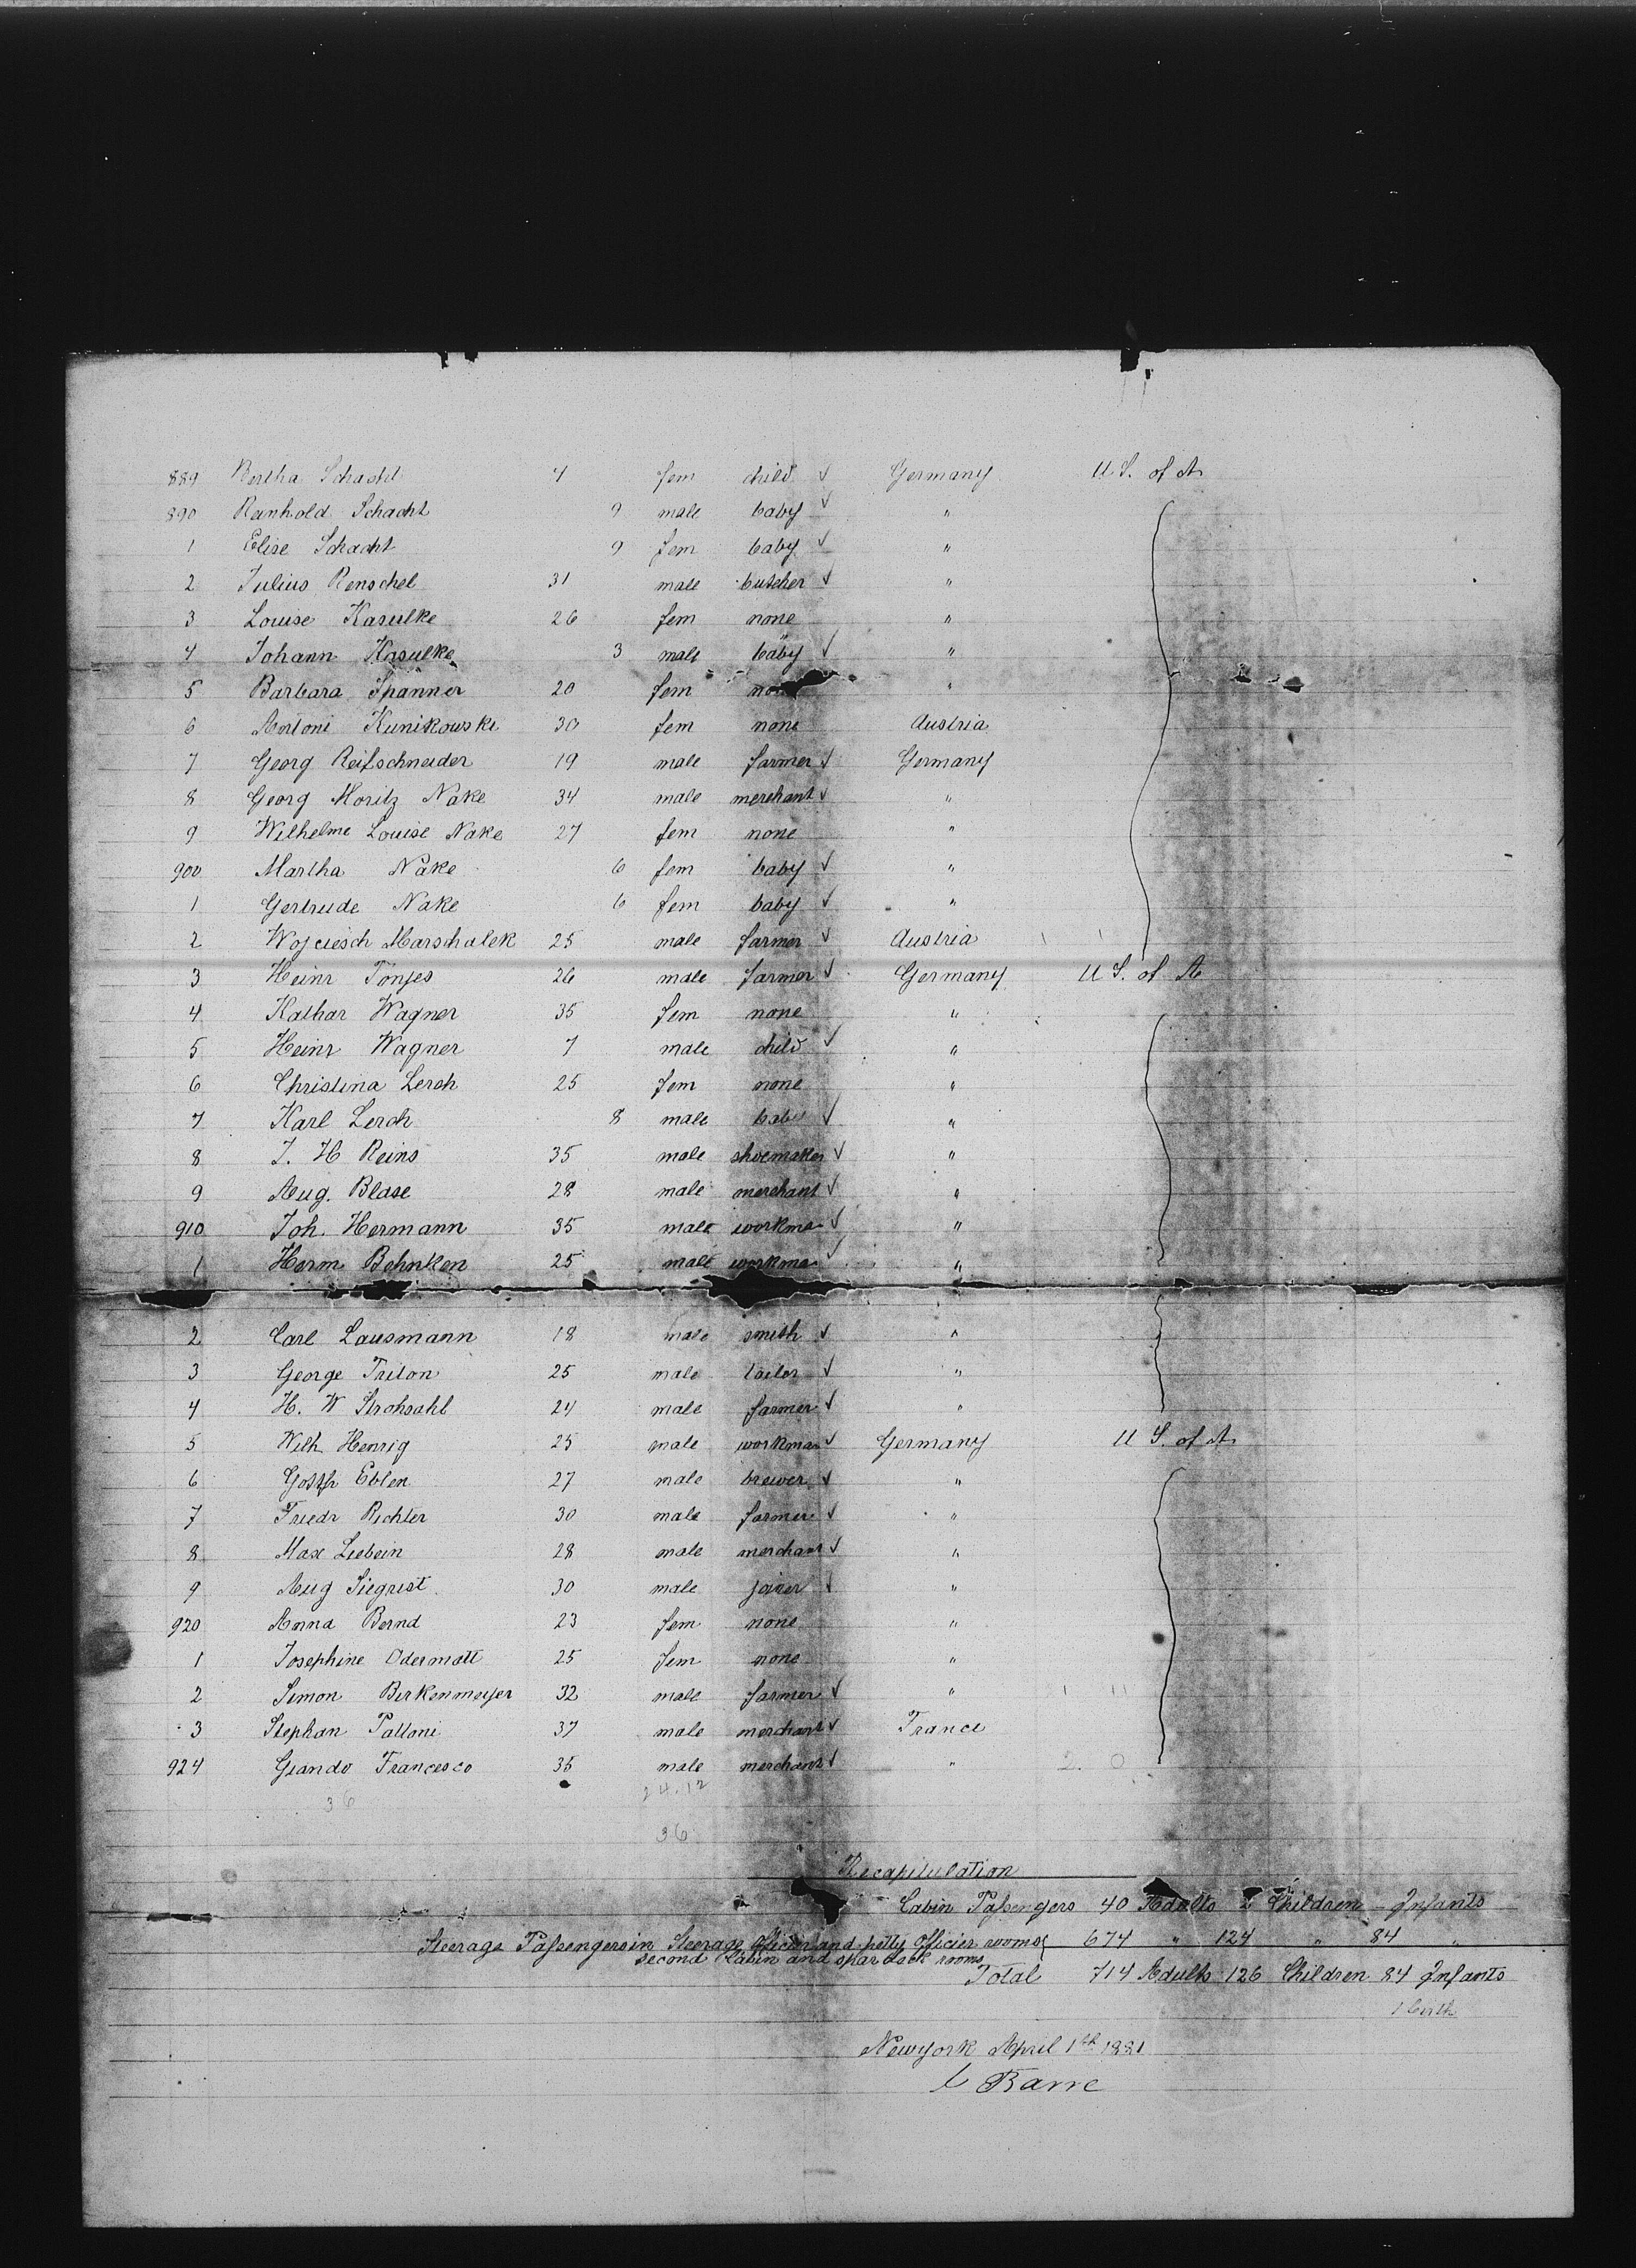 889 Bertha Schacht 7 fem child ✓ Germany U.S. of A.
890 Reinhold Schacht 9 male baby ✓ "
1 Elise Schacht 9 fem baby ✓ "
2 Julius Renschel 31 male butcher ✓ "
3 Louise Kasulke 26 fem none "
4 Johann Kasulke 3 male baby ✓ "
5 Barbara Spanner 20 fem "
6 Antoni Kunikowski 30 fem none Austria
7 Georg Reifschneider 19 male farmer ✓ Germany
8 Georg Moritz Nake 34 male merchant ✓ "
9 Wilhelme Louise Nake 27 fem none "
900 Martha Nake 6 fem baby ✓ "
1 Gertrude Nake 6 fem baby ✓ "
2 Wojciesch Marschalek 25 male farmer ✓ Austria
3 Heinr Tönjes 26 male farmer ✓ Germany U S. of A
4 Kathar Wagner 35 fem none "
5 Heinr Wagner 7 male child ✓ "
6 Christina Lerch 25 fem none "
7 Karl Lerch 8 male baby ✓ "
8 J. H Reins 35 male shoemaker ✓ "
9 Aug. Blase 28 male merchant ✓ "
910 Joh. Hermann 35 male workman ✓ "
1 Herm. Behnken 25 male workman ✓ "
2 Carl Lausmann 18 male smith ✓ "
3 George Triton 25 male tailor ✓ "
4 H. W Strohsahl 24 male farmer ✓ "
5 Wilh. Henrig 25 male workman ✓ Germany U S. of A.
6 Eblen 27 male brewer ✓ "
7 Friedr Richter 30 male farmer ✓ "
8 Max Liebein 28 male merchant ✓ "
9 Aug Siegrist 30 male joiner ✓ "
920 Anna Bernd 23 fem none "
1 Josephine Odermatt 25 fem none "
2 Simon Birkenmeyer 32 male farmer ✓ "
3 Stephan Palloni 37 male merchant ✓ France
924 Giando Francesco 35 male merchant ✓ " 2. 0
36 24.12
36
Recapitulation
Cabin Passengers 40 Adults 2 Children - Infants
Steerage Passengers in Steerage Officier and petty Officier rooms { 674 " 124 " 84 "
second Cabin and spar deck rooms
Total 714 Adults 126 Children 84 Infants
1 birth
Newyork April 1th 1881
Barre